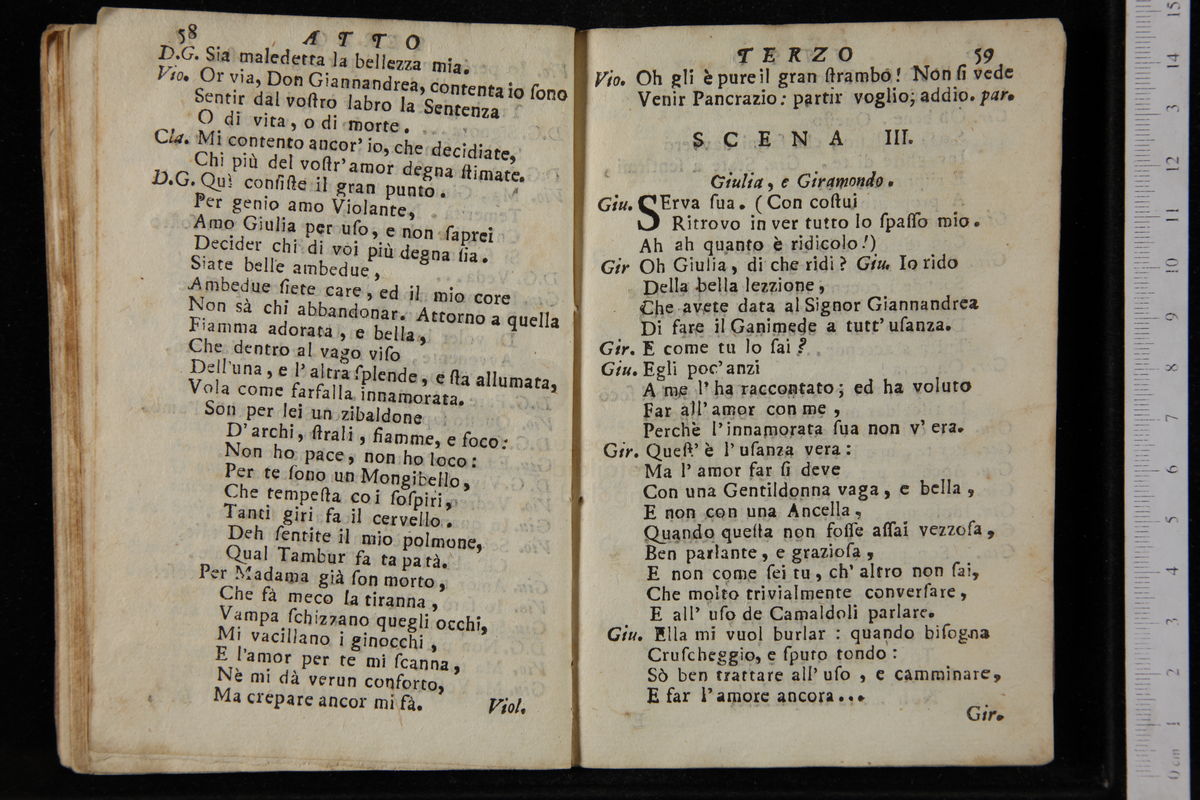 58
ATTO
D.G. Sia maledetta la bellezza mia.
Vio. Or via, Don Giannandrea, contenta io ſono
Sentir dal voſtro labro la Sentenza
O di vita, o di morte.
Cla. Mi contento ancor' io, che decidiate,
Chi più del voſtr' amor degna ſtimate.
D.G. Quì conſiſte il gran punto.
Per genio amo Violante,
Amo Giulia per uſo, e non ſaprei
Decider chi di voi più degna ſia.
Siate belle ambedue,
Ambedue ſiete care, ed il mio core
Non sà chi abbandonar. Attorno a quella
Fiamma adorata, e bella,
Che dentro al vago viſo
Dell'una, e l'altra ſplende, e ſta allumata,
Vola come farfalla innamorata.
Son per lei un zibaldone
D'archi, ſtrali, fiamme, e foco:
Non ho pace, non ho loco:
Per te ſono un Mongibello,
Che tempeſta coi ſoſpiri,
Tanti giri fa il cervello.
Deh ſentite il mio polmone,
Qual Tambur fa ta pa tà.
Per Madama già ſon morto,
Che fà meco la tiranna,
Vampa ſchizzano quegli occhi,
Mi vacillano i ginocchi,
E l'amor per te mi ſcanna,
Nè mi dà verun conforto,
Ma crepare ancor mi fà.
Viol.
TERZO
59
Vio. Oh gli è pure il gran ſtrambo! Non ſi vede
Venir Pancrazio: partir voglio; addio. par.
SCENA III.
Giulia, e Giramondo.
Giu. SErva ſua. (Con coſtui
Ritrovo in ver tutto lo ſpaſſo mio.
Ah ah quanto è ridicolo!)
Gir Oh Giulia, di che ridi? Giu. Io rido
Della bella lezzione,
Che avete data al Signor Giannandrea
Di fare il Ganimede a tutt' uſanza.
Gir. E come tu lo ſai?
Giu. Egli poc' anzi
A me l' ha raccontato; ed ha voluto
Far all' amor con me,
Perchè l'innamorata ſua non v' era.
Gir. Queſt' è l' uſanza vera:
Ma l' amor far ſi deve
Con una Gentildonna vaga, e bella,
E non con una Ancella,
Quando queſta non foſſe aſſai vezzoſa,
Ben parlante, e grazioſa,
E non come ſei tu, ch' altro non ſai,
Che molto trivialmente converſare,
E all' uſo de Camaldoli parlare.
Giu. Ella mi vuol burlar: quando biſogna
Cruſcheggio, e ſputo tondo:
Sò ben trattare all' uſo, e camminare,
E far l'amore ancora...
Gir.
15
14
13
12
11
10
9
8
7
6
5
4
3
2
1
0 cm